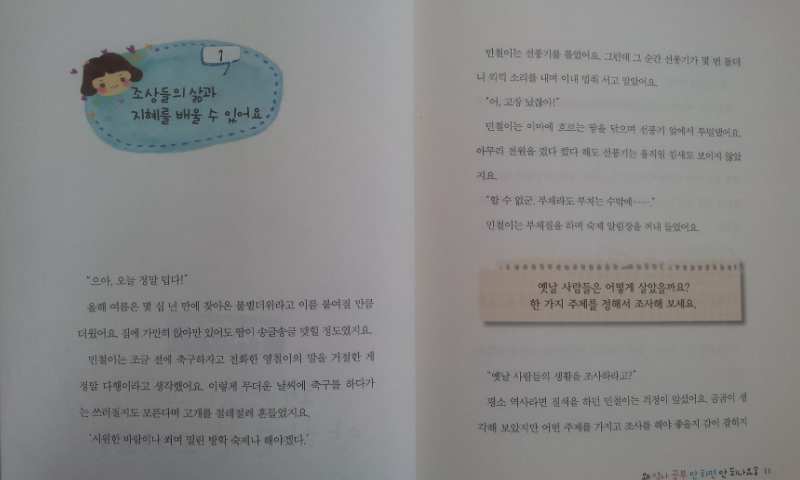 1
조상들의 삶과
지혜를 배울 수 있어요
"으아, 오늘 정말 덥다!"
올해 여름은 몇 십 년 만에 찾아온 불볕더위라고 이름 붙여질 만큼
더웠어요. 집에 가만히 앉아만 있어도 땀이 송글송글 맺힐 정도였지요.
민철이는 조금 전에 축구하자고 전화한 영철이의 말을 거절한 게
정말 다행이라고 생각했어요. 이렇게 무더운 날씨에 축구를 하다가
는 쓰러질지도 모른다며 고개를 절레절레 흔들었지요.
'시원한 바람이나 쐬며 밀린 방학 숙제나 해야겠다.'
민철이는 선풍기를 틀었어요. 그런데 그 순간 선풍기가 몇 번 돌더
니 끽끽 소리를 내며 이내 멈춰 서고 말았어요.
"어, 고장 났잖아!"
민철이는 이마에 흐르는 땀을 닦으며 선풍기 앞에서 투덜댔어요.
아무리 전원을 껐다 켰다 해도 선풍기는 움직일 낌새도 보이지 않았
지요.
"할 수 없군. 부채라도 부치는 수밖에……."
민철이는 부채질을 하며 숙제 알림장을 꺼내 들었어요.
옛날 사람들은 어떻게 살았을까요?
한 가지 주제를 정해서 조사해 보세요.
"옛날 사람들의 생활을 조사하라고?"
평소 역사라면 질색을 하던 민철이는 걱정이 앞섰어요. 곰곰이 생
각해 보았지만 어떤 주제를 가지고 조사를 해야 좋을지 감이 잡히지
왜 역사 공부 안 하면 안 되나요? 11